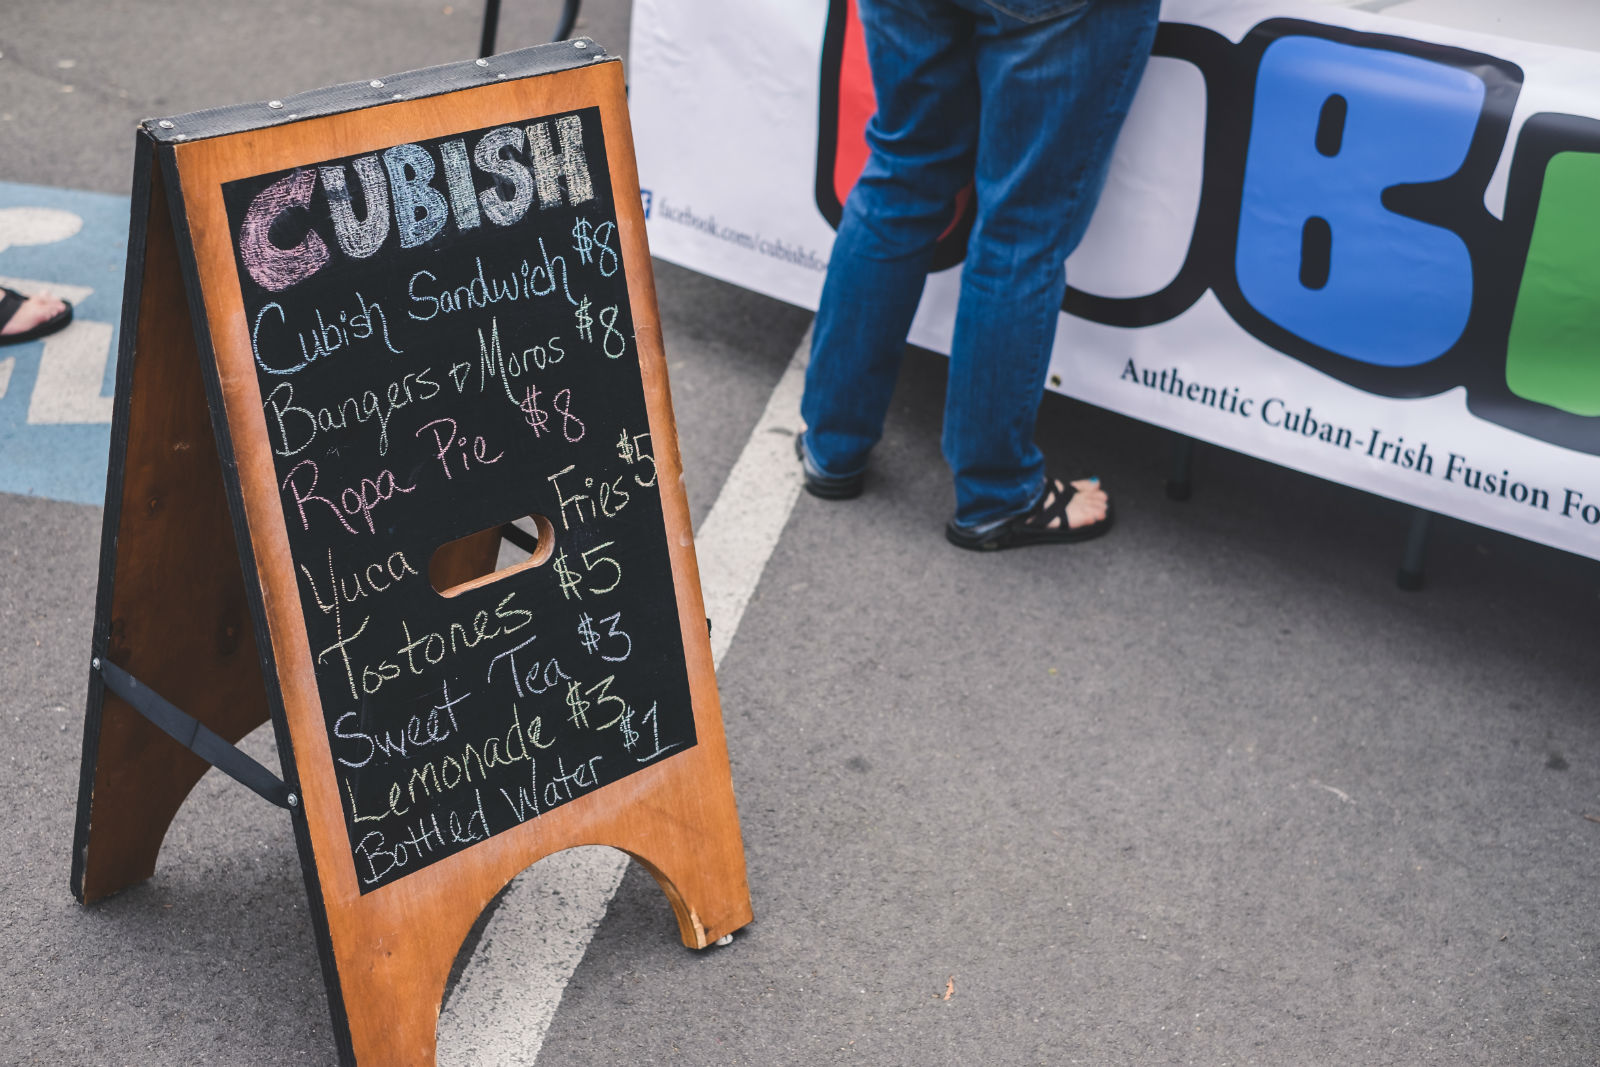 CUBISH
Cubish Sandwich $8
Bangers & Moros $8
Ropa Pie $8
Yuca Fries $5
Tostones $5
Sweet Tea $3
Lemonade $3
Bottled Water $1
facebook.com/cubishfo
UB
Authentic Cuban-Irish Fusion Fo